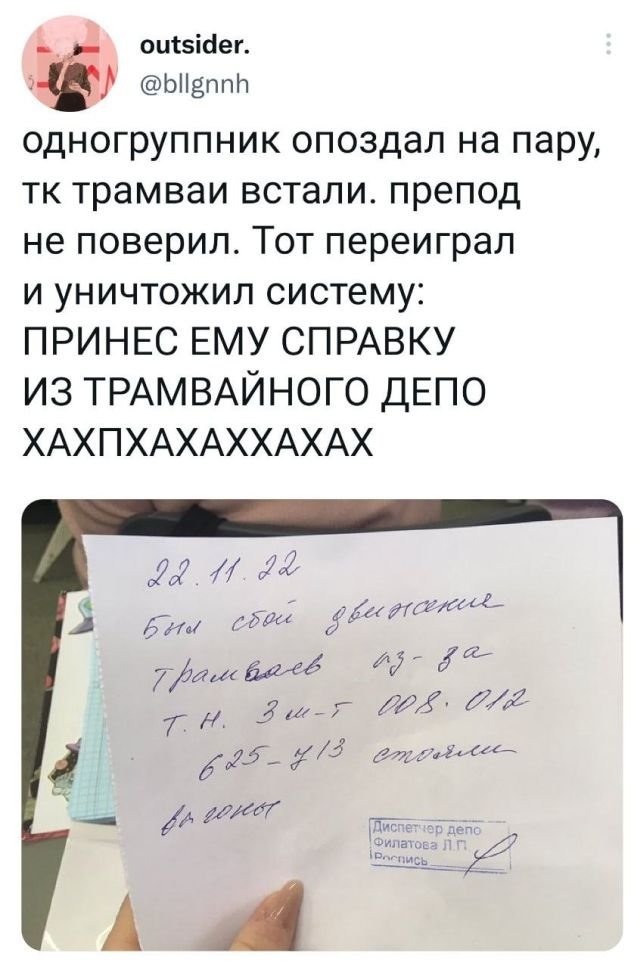 outsider.
@bllgnnh
одногруппник опоздал на пару,
тк трамваи встали. препод
не поверил. Тот переиграл
и уничтожил систему:
ПРИНЕС ЕМУ СПРАВКУ
ИЗ ТРАМВАЙНОГО ДЕПО
ХАХПХАХАХХАХАХ
22.11.22
Был сбой движения
трамваев из-за
Т.Н. 3 м-т 008.012
625-713 стояли
вагоны
Диспетчер депо
Филатова Л.П
Роспись